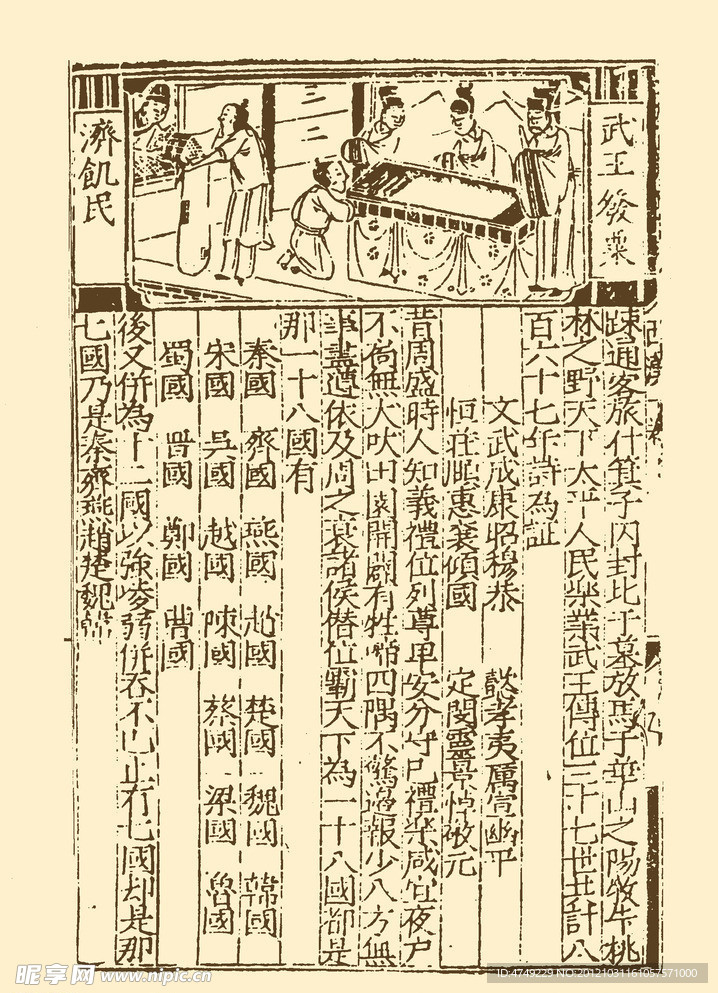 武王發粟
濟飢民
三二
疎通客旅什箕子囚封比干墓放馬于華山之陽牧牛桃
林之野天下太平人民樂業武王傳位三十七世共計八
百六十七年詩為証
文武成康昭穆恭 懿孝夷厲宣幽平
恒莊熙惠襄傾國 定閔靈景悼敬元
昔周盛時人知義禮位列尊卑安分守己禮樂咸宜夜户
不尙無犬吠田園開闢有牲四隅不驚邊報少八方無
事盡遵依及周之衰諸侯僭位霸天下為一十八國都是
那一十八國有
秦國 齊國 燕國 趙國 楚國 魏國 韓國
宋國 吳國 越國 陳國 蔡國 梁國 魯國
蜀國 晋國 鄭國 曹國
後又併為十二國以強凌弱併吞不已止有七國却是那
七國乃是秦齊燕趙楚魏韓
昵享网 www.nipic.cn
ID:4749229 NO:20121031161057571000